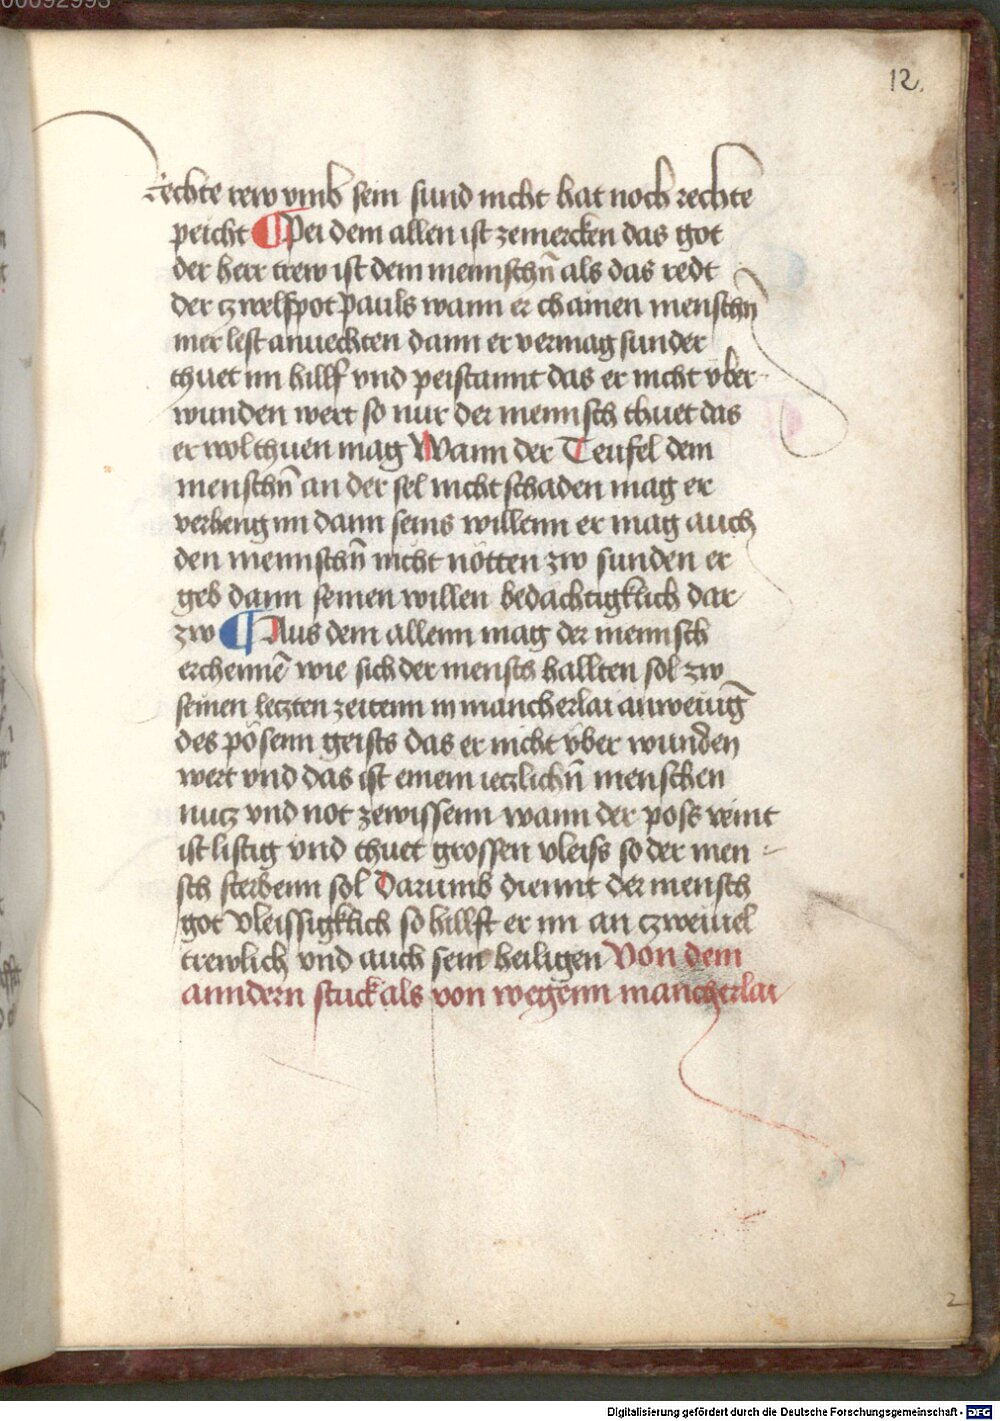 00092993
12.
rechte rew vmb sein sund nicht hat noch rechte
peicht ¶ Pei dem allen ist zemercken das got
der herr trew ist dem mennschn̄ als das redt
der zwelfpot Pauls wann er chainen menschn̄
mer lest anuechten dann er vermag sunder
thuet im hillf vnd peistannt das er nicht vber
wunden wert so nur der mennsch thuet das
er wol thuen mag Wann der Teufel dem
menschn̄ an der sel nicht schaden mag er
verheng im dann seins willenn er mag auch
den mennschn̄ nicht nötten zw sunden er
geb dann seinen willen bedächtigklich dar
zw ¶ Aus dem allenn mag der mennsch
erchennē wie sich der mensch hallten sol zw
seinen leczten zeitenn in mancherlai anweiūg
des pösenn geists das er nicht vber wunden
wert vnd das ist einem ieczlichn̄ menschen
nucz vnd not zewissenn wann der poss veint
ist listig vnd thuet grossen vleiss so der men
sch sterbenn sol Darumb diennt der mensch
got vleissigklich so hillft er im an czweiuel
trewlich vnd auch sein heiligen Von dem
anndern stuck als von wegenn mancherlai
2
Digitalisierung gefördert durch die Deutsche Forschungsgemeinschaft - DFG